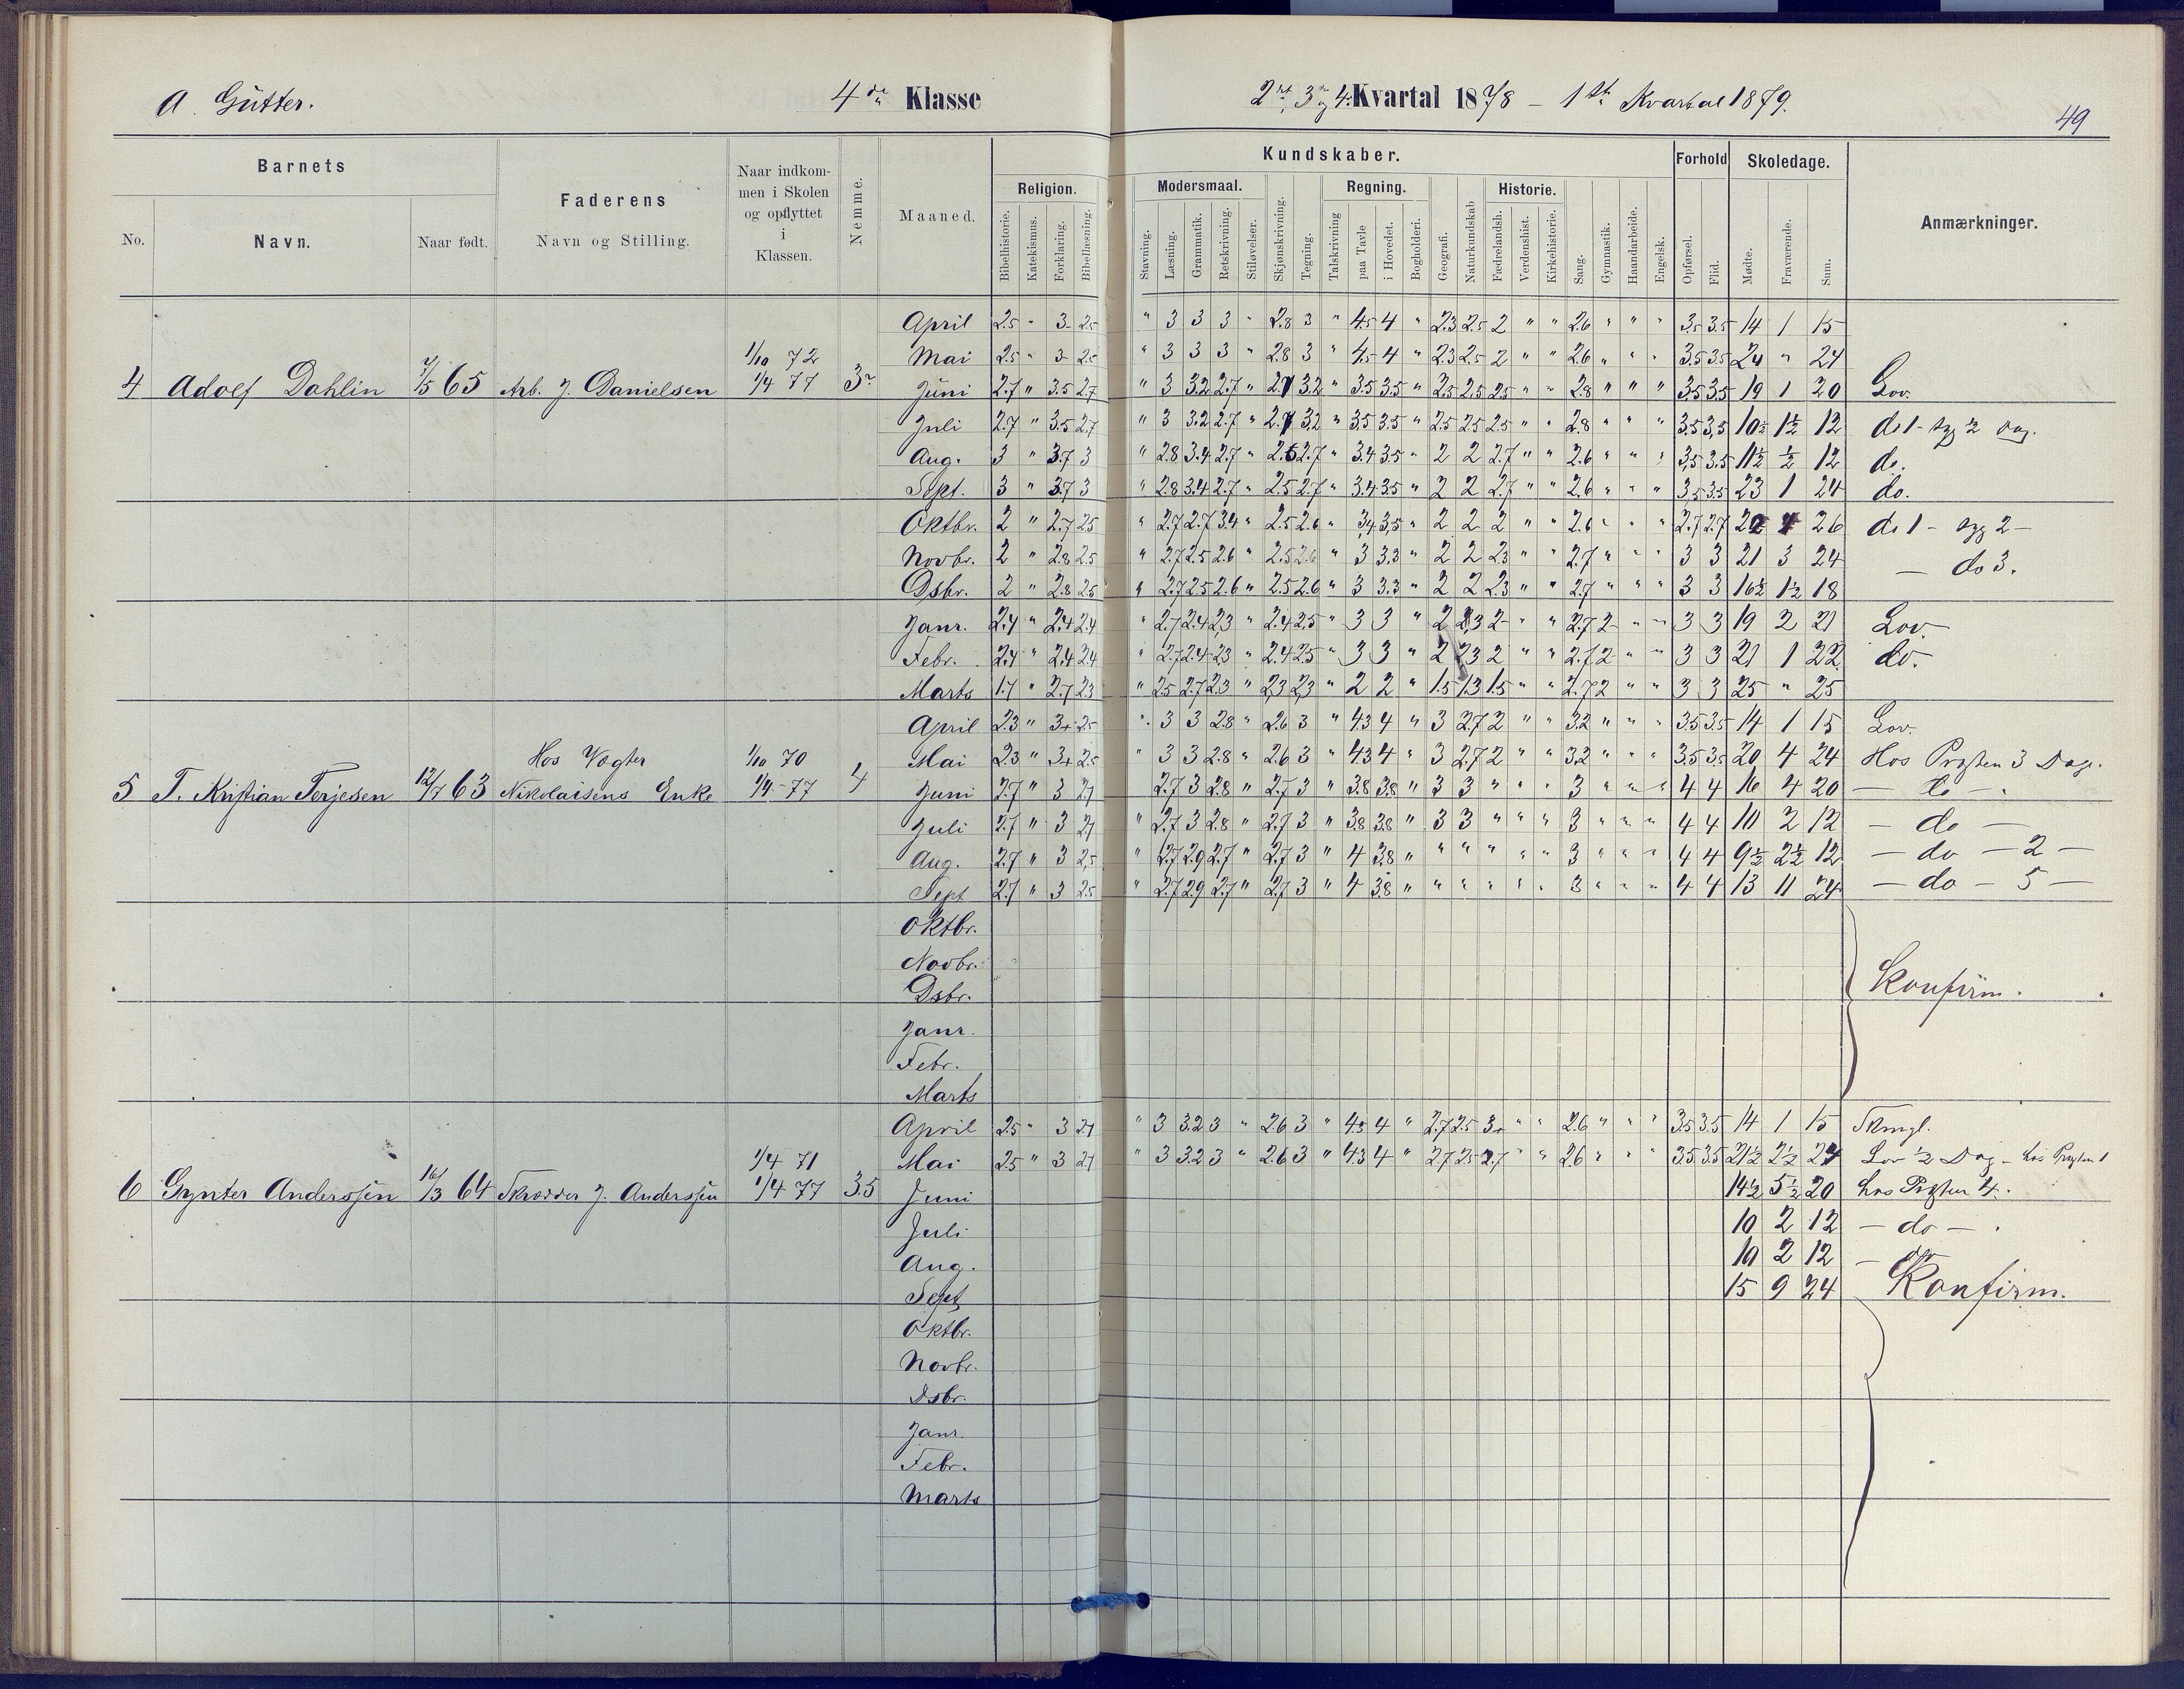 A. Gutter.
4de Klasse
2det, 3die og 4de Kvartal 1878 – 1ste Kvartal 1879.
49
Barnets
No.
Navn.
Naar født.
Faderens
Navn og Stilling.
Naar indkom-
men i Skolen
og opflyttet
i
Klassen.
Nemme.
Maaned.
Kundskaber.
Religion.
Bibelhistorie.
Katekismus.
Forklaring.
Bibellæsning.
Modersmaal.
Stavning.
Læsning.
Grammatik.
Retskrivning.
Stiløvelser.
Skjønskrivning.
Tegning.
Regning.
Talskrivning
paa Tavle
i Hovedet.
Bogholderi.
Geografi.
Naturkundskab
Historie.
Fædrelandsh.
Verdenshist.
Kirkehistorie.
Sang.
Gymnastik.
Haandarbeide.
Engelsk.
Forhold
Opførsel.
Flid.
Skoledage.
Mødte.
Fraværende.
Sum.
Anmærkninger.
4 Adolf Dahlin 7/5 65 Arb. J. Danielsen 1/10 72 1/4 77
April 2.5 " 3 2.5 " 3 3 3 " 2.8 3 " 4.5 4 " 2.3 2.5 2 " " 2.6 " " " 3.5 3.5 14 1 15
Mai 2.5 " 3 2.5 " 3 3 3 " 2.8 3 " 4.5 4 " 2.3 2.5 2 " " 2.6 " " " 3.5 3.5 24 " 24
Juni 2.7 " 3.5 2.7 " 3 3.2 2.7 " 2.7 3.2 " 3.5 3.5 " 2.5 2.5 2.5 " " 2.8 " " " 3.5 3.5 19 1 20 Lov.
Juli 2.7 " 3.5 2.7 " 3 3.2 2.7 " 2.7 3.2 " 3.5 3.5 " 2.5 2.5 2.5 " " 2.8 " " " 3.5 3.5 10½ 1½ 12 do 1 - syg ½ Dag.
Aug. 3 " 3.7 3 " 2.8 3.4 2.7 " 2.5 2.7 " 3.4 3.5 " 2 2 2.7 " " 2.6 " " " 3.5 3.5 11½ ½ 12 do.
Sept. 3 " 3.7 3 " 2.8 3.4 2.7 " 2.5 2.7 " 3.4 3.5 " 2 2 2.7 " " 2.6 " " " 3.5 3.5 23 1 24 do.
Oktbr. 2 " 2.7 2.5 " 2.7 2.7 3.4 " 2.5 2.6 " 3,4 3,5 " 2 2 2 " " 2.6 " " " 2.7 2.7 22 4 26 do 1 - syg 2 -
Novbr. 2 " 2.8 2.5 " 2.7 2.5 2.6 " 2.5 2.6 " 3 3.3 " 2 2 2.3 " " 2.7 " " " 3 3 21 3 24 - do 3.
Dsbr. 2 " 2.8 2.5 " 2.7 2.5 2.6 " 2.5 2.6 " 3 3.3 " 2 2 2.3 " " 2.7 " " " 3 3 16½ 1½ 18
Janr. 2.4 " 2.4 2.4 " 2.7 2.4 2.3 " 2.4 2.5 " 3 3 " 2 2.3 2 " " 2.7 2 " " 3 3 19 2 21 Lov.
Febr. 2.4 " 2.4 2.4 " 2.7 2.4 2.3 " 2.4 2.5 " 3 3 " 2 2.3 2 " " 2.7 2 " " 3 3 21 1 22 do.
Marts 1.7 " 2.7 2.3 " 2.5 2.7 2.3 " 2,3 2,3 " 2 2 " 1.5 1.3 1.5 " " 2.7 2 " " 3 3 25 " 25
5 T. Kristian Terjesen 12/7 63 Hos Vægter Nikolaisens Enke 1/10 70 1/4 77 4
April 2.3 " 3+ 2.5 " 3 3 2.8 " 2.6 3 " 4.3 4 " 3 2.7 2 " " 3.2 " " " 3.5 3.5 14 1 15 Lov.
Mai 2.3 " 3+ 2.5 " 3 3 2.8 " 2.6 3 " 4.3 4 " 3 2.7 2 " " 3.2 " " " 3.5 3.5 20 4 24 Hos Presten 3 Dage.
Juni 2.7 " 3 2.7 2.7 3 2.8 " 2.7 3 " 3.8 3.8 " 3 3 " " " 3 " " " 4 4 16 4 20 - do -
Juli 2.7 " 3 2.7 " 2.7 3 2.8 " 2.7 3 " 3.8 3.8 " 3 3 " " " 3 " " " 4 4 10 2 12 - do -
Aug. 2.7 " 3 2.5 " 2.7 2.9 2.7 " 2.7 3 " 4 3.8 " " " " " " 3 " " " 4 4 9½ 2½ 12 - do - 2 -
Sept 2.7 " 3 2.5 " 2.7 2.9 2.7 " 2.7 3 " 4 3.8 " " " " " " 3 " " " 4 4 13 11 24 - do - 5 -
Oktbr.
Novbr.
Dsbr. Konfirm.
Janr.
Febr.
Marts
6 Gynter Anderssen 16/3 64 Skrædder J. Anderssen 1/4 71 1/4 77 3.5
April 2.5 " 3 2.7 " 3 3.2 3 " 2.6 3 " 4.3 4 " 2.7 2.5 3+ " " 2.6 " " " 3.5 3.5 14 1 15
Mai 2.5 " 3 2.7 " 3 3.2 3 " 2.6 3 " 4.3 4 " 2.7 2.5 2.7 " " 2.6 " " " 3.5 3.5 21½ 2½ 24 Lov ½ Dag - hos Presten 1
Juni 14½ 5½ 20 hos Presten 4.
Juli 10 2 12 - do -
Aug. 10 2 12 - do
Sept 15 9 24 Konfirm.
Oktbr.
Novbr.
Dsbr.
Janr.
Febr.
Marts